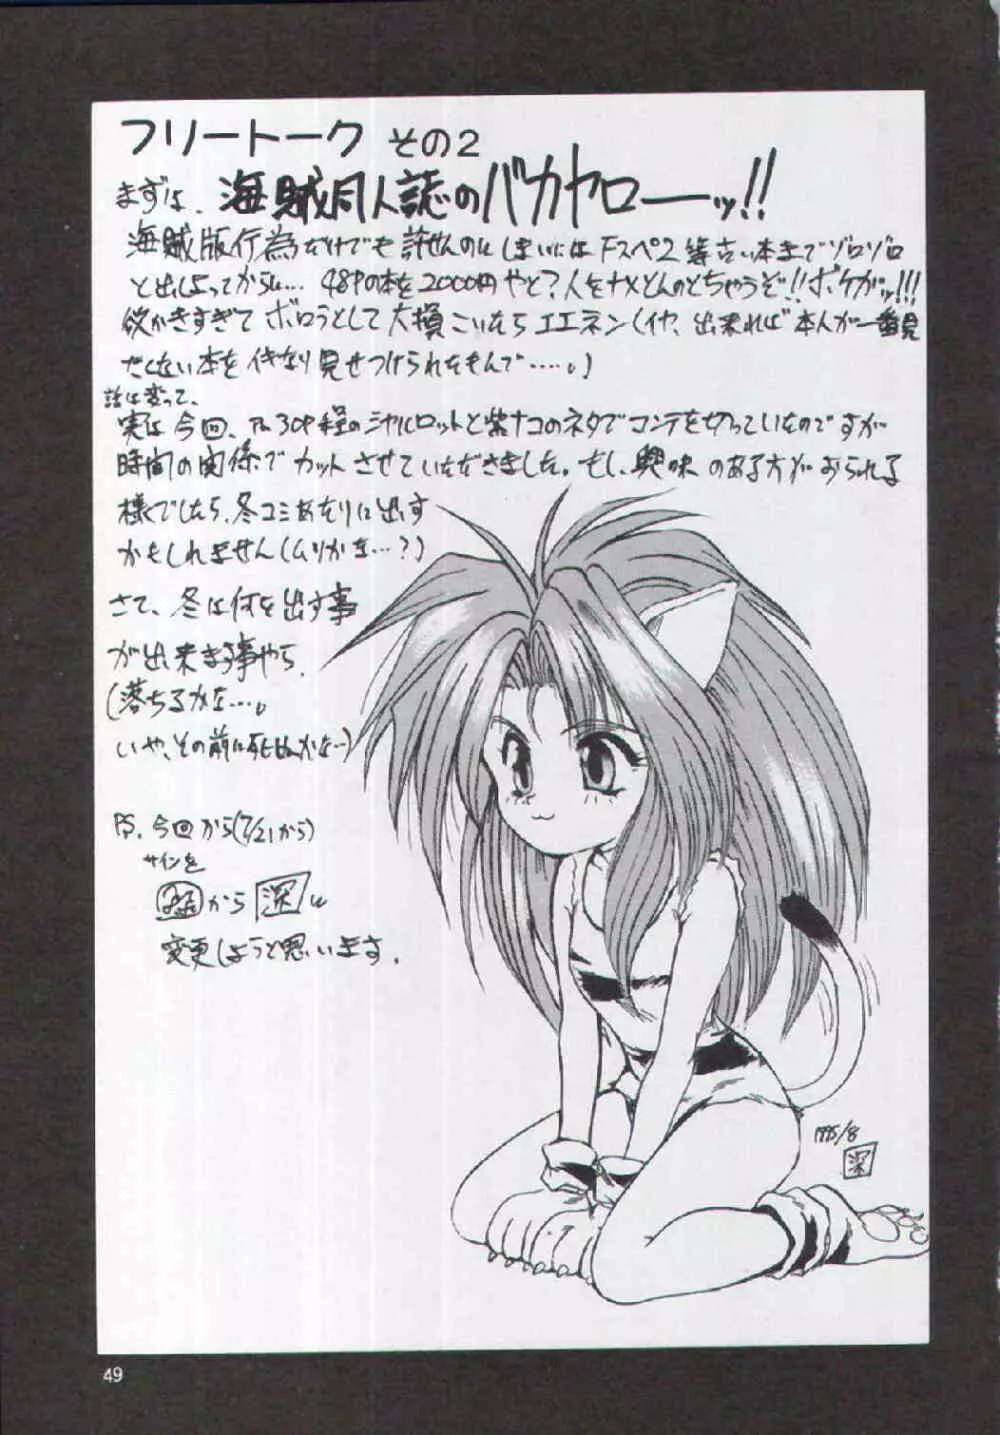 フリートーク その2
まずは、海賊同人誌のバカヤローーッ!!
海賊版行為だけでも許せんのに しまいには Fスペ2 等古い本までゾロゾロ
と出しよってからに… 48Pの本を2000円やと?人をナメとんのとちゃうぞ!!ボケがッ!!!
欲かきすぎて ボロうとして 大損こいたら エエネン(イヤ、出来れば 本人が一番見
たくない本を イキなり 見せつけられたもんで……。)
話は変って、
実は今回、 30P程のシャルロットと紫ナコのネタでコンテを切っていたのですが
時間の関係で カット させていただきました。もし、興味のある方がおられる
様でしたら、冬コミあたりに出す
かもしれません(ムリかな…?)
さて、冬は何を出す事
が出来ます事やら、
(落ちるかな…。
いや、その前に死ぬかな…)
PS. 今回から(7/21から)
サインを
から 深 に
変更しようと思います。
1995/8
深
49